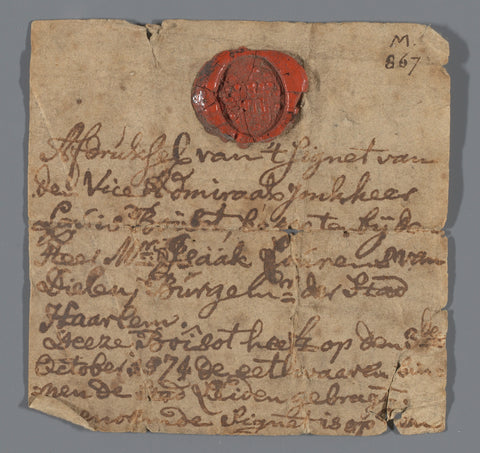 M.
867
Afdruksel van 't Signet van
den Vice Admiraal Jonkheer
Louis Boisot, berusten bij de
Heer Mr. Isaäk van
Dielen, Burgemr. der Stad
Haarlem.
Deeze Boisot heeft op den 3den
October 1574 de eetwaaren bin-
nen de Stad Leiden gebragt.
de Signet is op